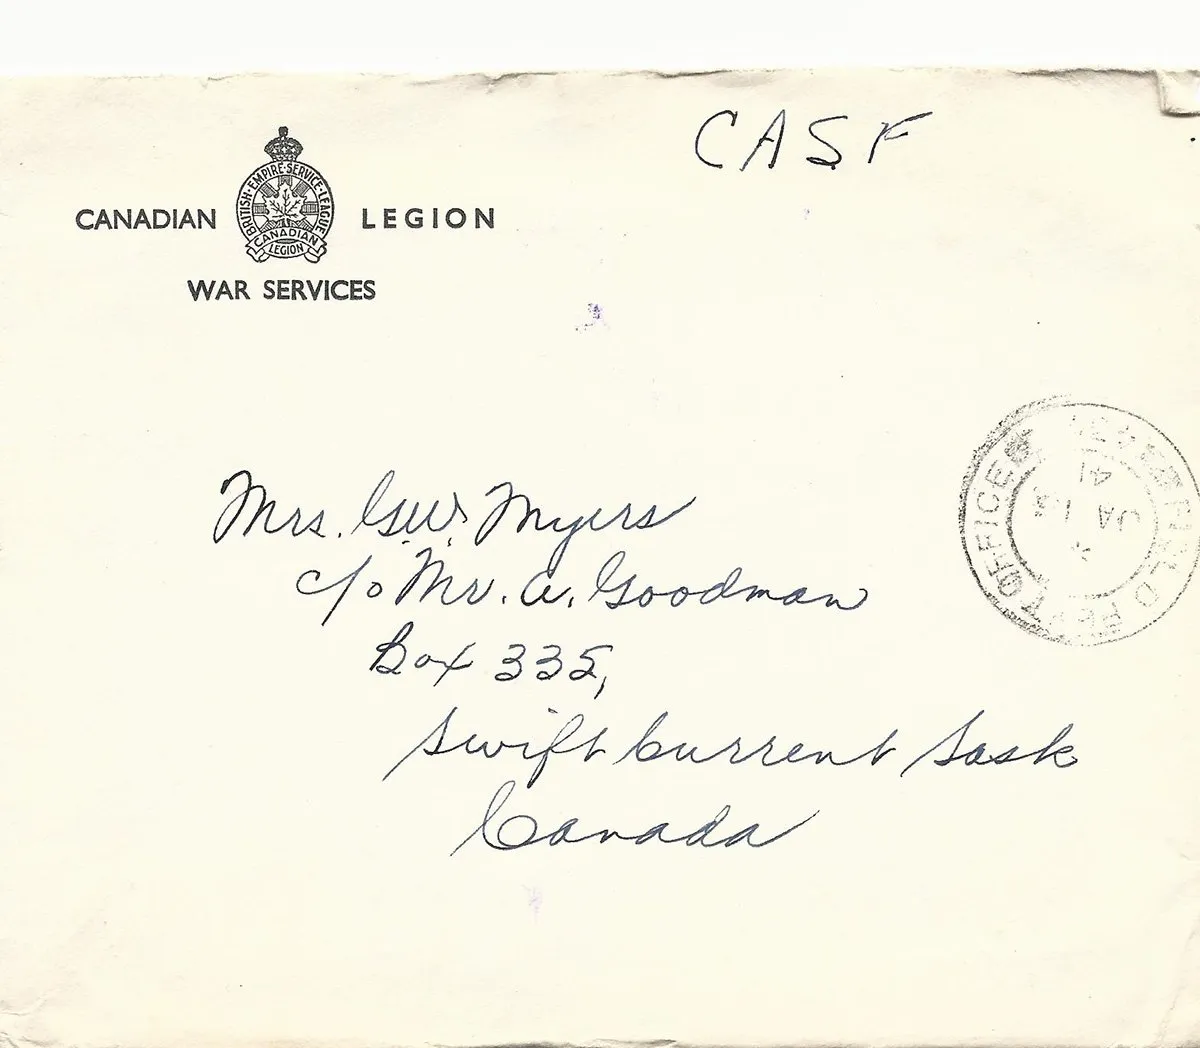 CASF
BRITISH·EMPIRE·SERVICE·LEAGUE
CANADIAN LEGION
CANADIAN
LEGION
WAR SERVICES
FIELD POST OFFICE
JA 13
41
Mrs. G.W. Myers
c/o Mr. A. Goodman
Box 335,
Swift Current Sask
Canada